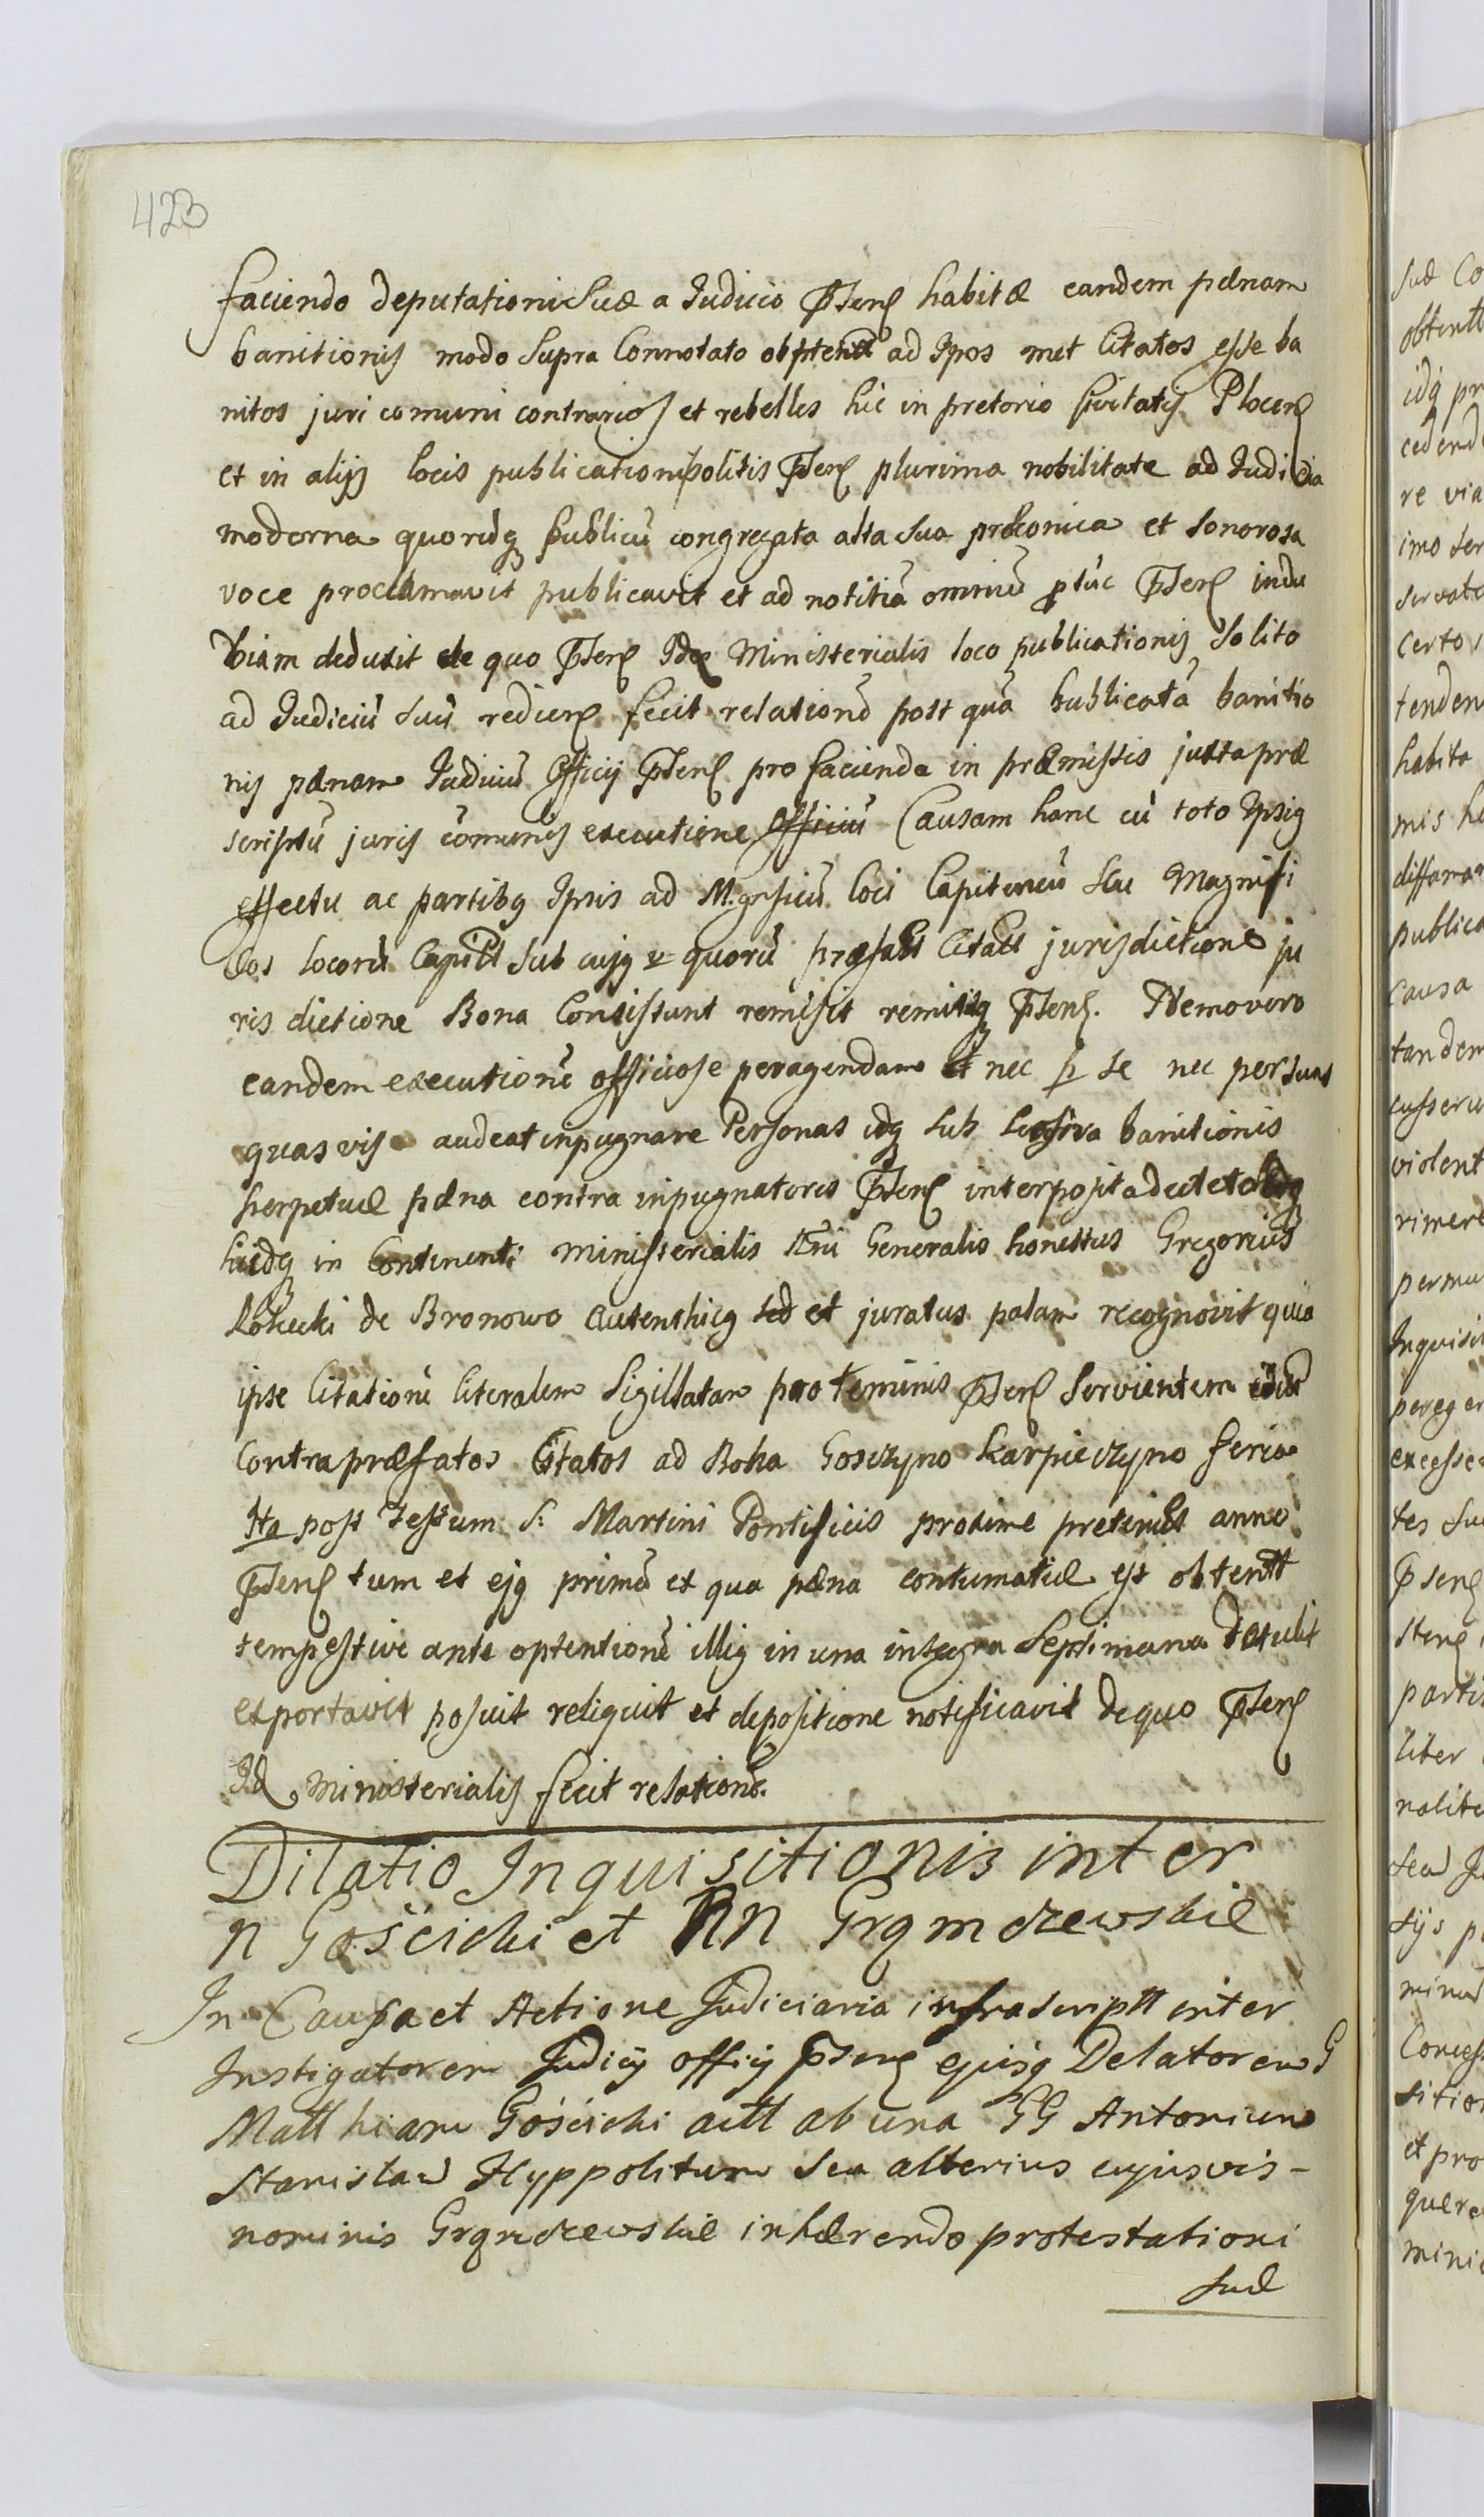 423
faciendo deputationi suæ a Judicio Pſenſ habitæ eandem pænam
banitionis modo supra Connotato obptentt ad Ipos met Citatos esse ba
nitos juri comuni contrarios et rebelles hic in pretorio Civitatis Plocenſ
et in alijs locis publicationi solitis Pſenſ plurima nobilitate ad Judicia
moderna quorūdq publicū congregata alta sua præconica et sonorosa
voce proclamavit publicavit et ad notitiā omniū ptūc Pſenſ indu
biam deduxit de quo Pſenſ Idē Ministerialis loco publicationis solito
ad Judiciū suū rediens fecit relationē post quā publicatā banitio
nis pænam Judiciū Officij Pſenſ pro facienda in præmissis juxta præ
scriptū juris comunis executione Causam hanc cū toto Ipsiq
effectu ac partibq Ipsis ad M.gnificū loci Capitaneū seu Magnifi
cos locorū Capitt sub cujq v quorū præfatt Citatt jurisdictione ju
ris dictione Bona Consistunt remisit remititq Pſenſ. Nemovero
eandem executionē officiose peragendam et nec p se nec per suas
quasvis audeat inpugnare Personas idq sub banitionis
perpetuæ pæna contra inpugnatores Pſenſ interposita
hicdq in Continenti ministerialis Rni Generalis honestus Gregorius
de Bronowo Autenthicq sed et juratus palam recognovit quia
ipse Citationē literalem Sigillatam pro terminis Pſenſ Servientem
Contra præfatos Citatos ad Bona Goszyno Karpiczyno feria
post Festum S. Martini Pontificis proxime preteritt anno
Pſenſ tum et ejq primū ex qua pæna contumatiæ est obtentt
tempestive ante optentionē illiq in una integra Septimana detulit
et portavit posuit reliquit et depositione notificavit de quo Pſenſ
Id Ministerialis fecit relationē.
Dilatio Inquisitionis inter
N Gościcki et NN Grąmdzewskie
In Causa et Actione Judiciaria infrascriptt inter
Instigatorem Judicij officij Pſenſ ejusq Delatorem G
Matthiam Gościcki actt ab una GG Antonium
Stanislaū Hyppolitum seu alterius cujusvis-
nominis Grąmdzewskie inhærendo protestationi
suæ